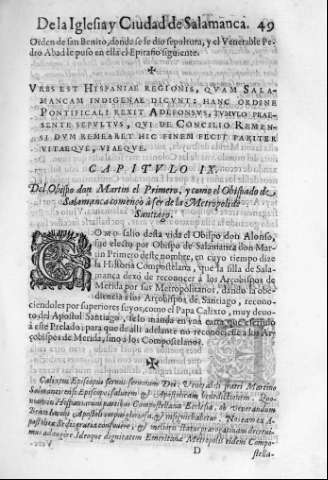 De la Iglesia y Ciudad de Salamanca. 49
Orden de san Benito, donde se le dio sepultura, y el Venerable Pe-
dro Abad le puso en ella el Epitafio siguiente.
VRBS EST HISPANIAE REGIONIS, QVAM SALA-
MANCAM INDIGENAE DICVNT: HANC ORDINE
PONTIFICALI REXIT ADEFONSVS, TVMVLO PRAE-
SENTE SEPVLTVS, QVI DE CONCILIO REMEN-
SI DVM REMEARET HIC FINEM FECIT PARITER
VITAEQVE, VIAEQVE.
CAPITVLO IX.
Del Obispo don Martin el Primero, y como el Obispado de
Salamanca començò à ser de la Metropoli de
Santiago.
COMO salio desta vida el Obispo don Alonso,
fue electo por Obispo de Salamanca don Mar-
tin Primero deste nombre, en cuyo tiempo dize
la Historia Compostelana, que la silla de Sala-
manca dexò de reconocer à los Arçobispos de
Merida por sus Metropolitanos, dando la obe-
diencia a los Arçobispos de Santiago, recono-
ciendoles por superiores suyos, como el Papa Calixto, muy devo-
to del Apostol Santiago, se lo manda en una carta que escrivio
à este Prelado; para que de alli adelante no reconociesse a los Ar-
çobispos de Merida, sino a los Compostelanos.
Calixtus Episcopus servus servorum Dei. Venerabili patri Martino
Salamantensi Episcopo salutem & Apostolicam benedictionem.
Hispaniarum partibus Compostellana Ecclesia, ob reverendam
Beati Iacobi Apostoli
mus
D
stella-